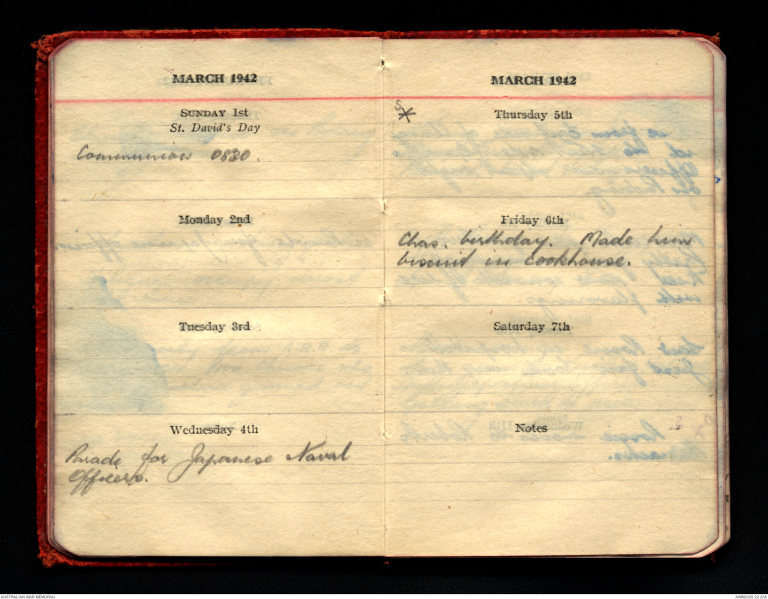 MARCH 1942
SUNDAY 1st
St. David's Day
Communion 0830.
Monday 2nd
Tuesday 3rd
Wednesday 4th
Parade for Japanese Naval
Officers.
MARCH 1942
Thursday 5th
Friday 6th
Chas. birthday. Made him
biscuit in cookhouse.
Saturday 7th
Notes
AUSTRALIAN WAR MEMORIAL